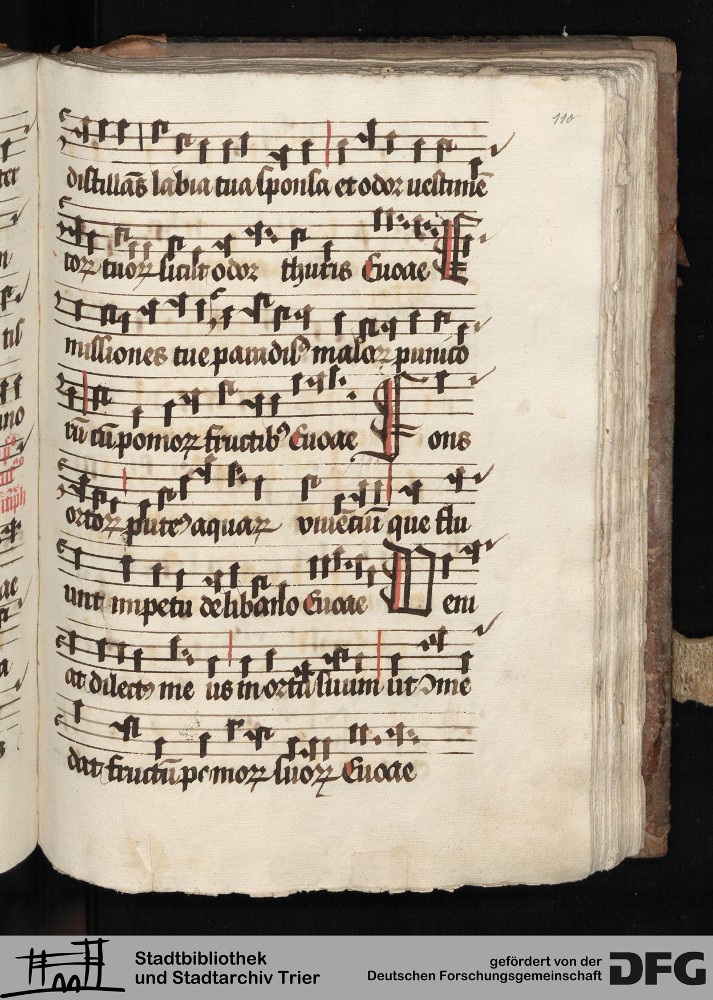 110
distillãs labia tua sponsa et odor uestimẽ
toꝝ tuoꝝ sicut odor thuris Euoae E
missiones tue paradisꝰ maloꝝ punico
rũ cũ pomoꝝ fructibꝰ Euoae F ons
ortoꝝ puteꝰ aquaꝝ viuẽciũ que flu
unt impetu de libano Euoae V eni
at dilectꝰ me us in ortũ suum ut ↄme
dat fructũ pomoꝝ suoꝝ Euoae
Stadtbibliothek
und Stadtarchiv Trier
gefördert von der
Deutschen Forschungsgemeinschaft
DFG